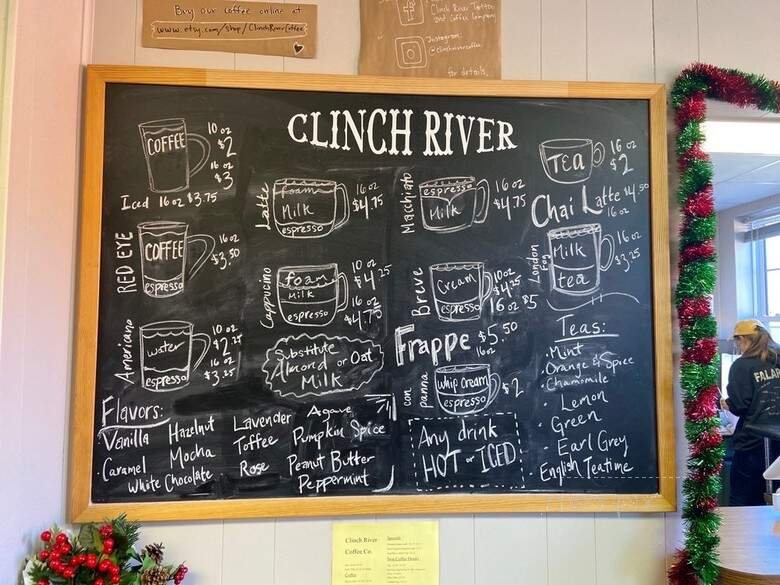 Buy our coffee online at
www.etsy.com/shop/ClinchRiverCoffee
Clinch River Tattoo
and Coffee Company
Instagram:
@clinchrivercoffee
for details.
CLINCH RIVER
COFFEE
10 oz
$2
16 oz
$3
Iced 16 oz $3.75
RED EYE
COFFEE
espresso
16 oz
$3.50
Americano
water
espresso
10 oz
16 oz
$3.25
Latte
foam
Milk
espresso
16 oz
$4.75
Cappucino
foam
MILK
espresso
10 oz
$4.25
16 oz
$4.75
Substitute
Almond or Oat
Milk
Macchiato
espresso
Milk
16 oz
$4.75
Breve
Cream
espresso
10 oz
$4.25
16 oz $5
Frappe $5.50
16 oz
con panna
Whip Cream
espresso
$2
Any drink
HOT or ICED
TEA
16 oz
$2
Chai Latte $4.50
16 oz
London Fog
Milk
tea
16 oz
$3.25
Teas:
· Mint
· Orange & Spice
· Chamomile
Lemon
· Green
Earl Grey
English Teatime
Flavors:
Vanilla
Hazelnut
Lavender
Agave
· Caramel
Mocha
Toffee
Pumpkin Spice
White Chocolate
Rose
Peanut Butter
Peppermint
Clinch River
Coffee Co.
Coffee
FALA